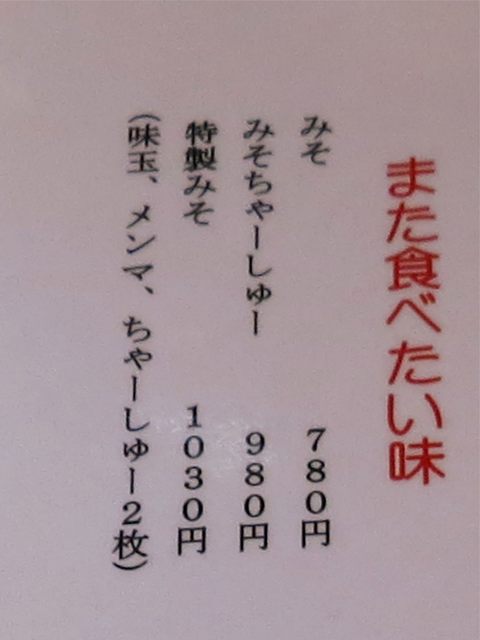 また食べたい味
みそ 780円
みそちゃーしゅー 980円
特製みそ 1030円
(味玉、メンマ、ちゃーしゅー2枚)